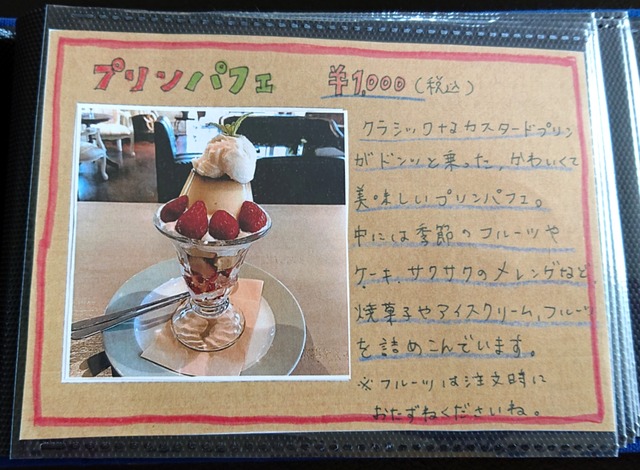 プリンパフェ ¥1,000(税込)
クラシックなカスタードプリン
がドンッと乗った、かわいくて
美味しいプリンパフェ。
中には季節のフルーツや
ケーキ、サクサクのメレンゲなど、
焼菓子やアイスクリーム、フルーツ
を詰めこんでいます。
※フルーツは注文時に
おたずねくださいね。